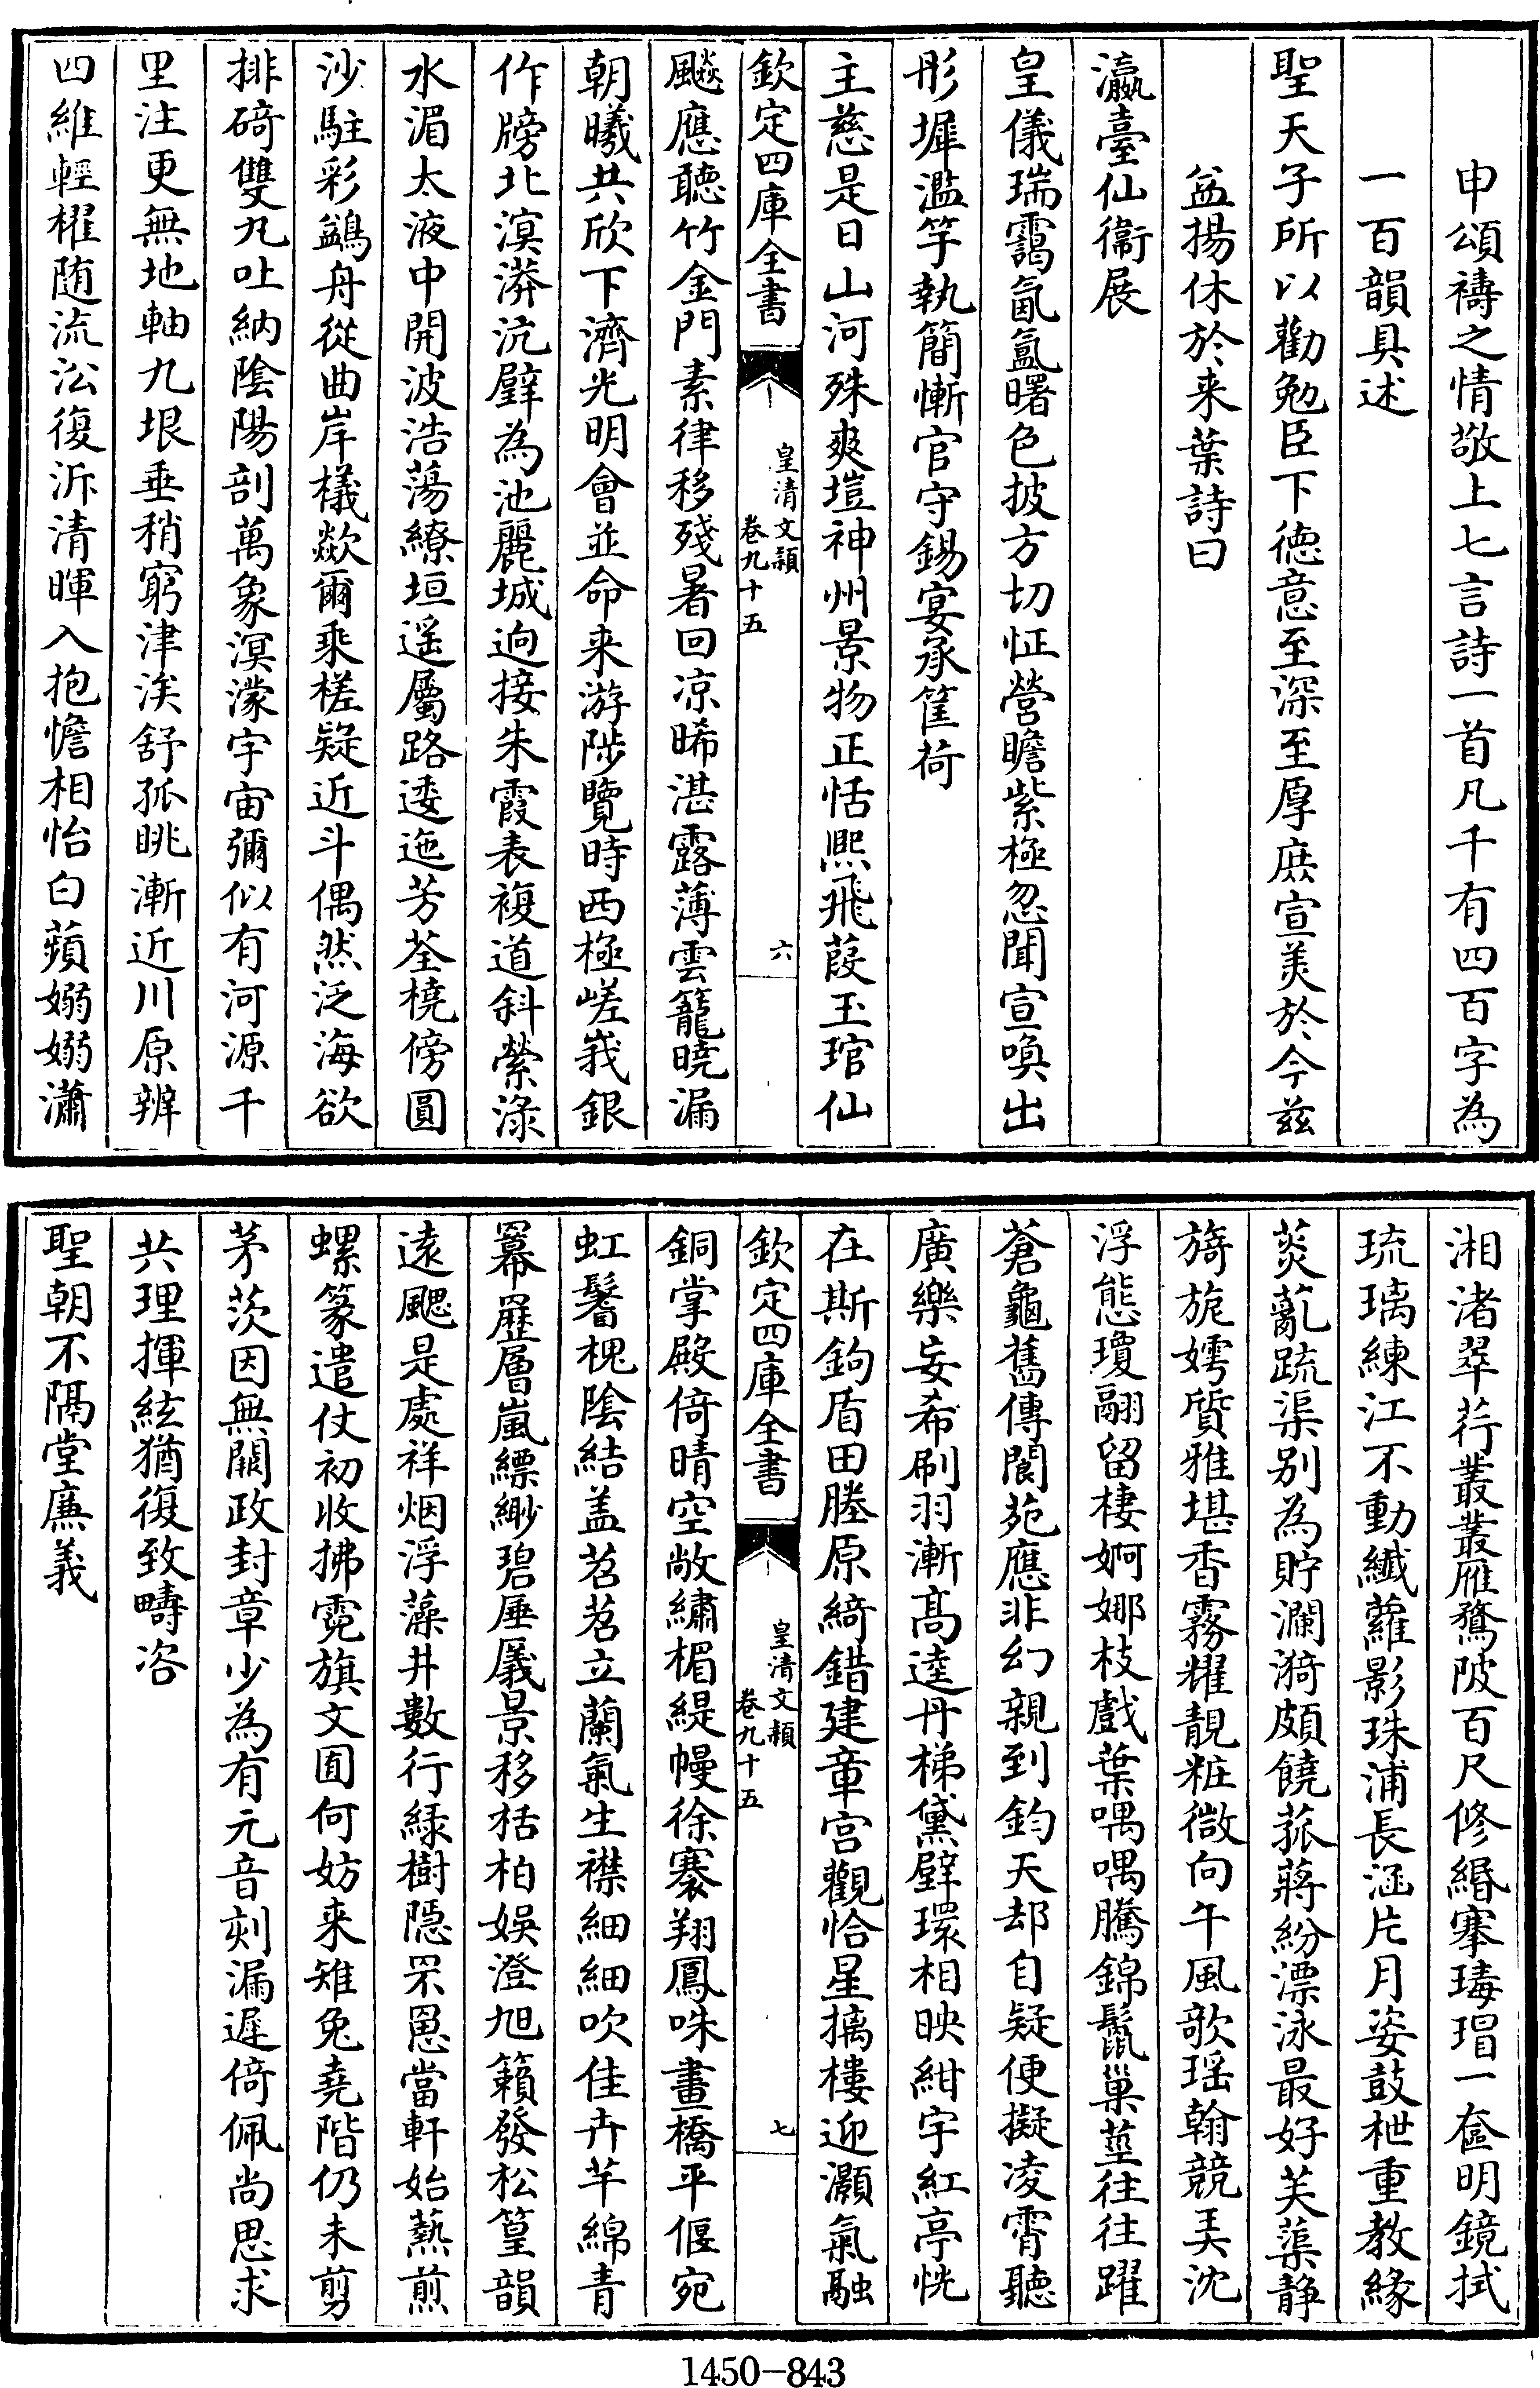 申頌禱之情敬上七言詩一首凡千有四百字為
一百韻具述
聖天子所以勸勉臣下德意至深至厚庶宣美於今兹
益揚休於来葉詩曰
瀛臺仙衞展
皇儀瑞靄氤氲曙色披方切怔營瞻紫極忽聞宣喚出
彤墀濫竽執簡慚官守錫宴承筐荷
主慈是日山河殊爽塏神州景物正恬熈飛葭玉琯仙
欽定四庫全書
皇清文頴
卷九十五
六
飈應聽竹金門素律移殘暑回凉晞湛露薄雲籠曉漏
朝曦共欣下濟光明會並命来游陟覽時西極嵯峩銀
作牓北溟漭沆壁為池麗城逈接朱霞表複道斜縈渌
水湄太液中開波浩蕩繚垣遥屬路逶迤芳荃橈傍圓
沙駐彩鷁舟從曲岸檥歘爾乘槎疑近斗偶然泛海欲
排碕雙丸吐納陰陽剖萬象溟濛宇宙彌似有河源千
里注更無地軸九垠垂稍窮津涘舒孤眺漸近川原辨
四維輕櫂随流㳂復泝清暉入抱憺相怡白蘋嫋嫋瀟
湘渚翠荇叢叢雁鶩陂百尺修緡搴瑇瑁一奩明鏡拭
琉璃練江不動纖蘿影珠浦長涵片月姿鼓枻重教緣
菼薍疏渠别為貯瀾漪頗饒菰蔣紛漂泳最好芙蕖静
旖旎嫮質雅堪香霧耀靚粧微向午風歌瑶翰競美沈
浮態瓊翮留棲婀娜枝戲葉喁喁騰錦鬛巢莖往往躍
蒼龜舊傳閬苑應非幻親到鈞天却自疑便擬凌霄聽
廣樂妄希刷羽漸髙逵丹梯黛壁環相映紺宇紅亭恍
在斯鉤盾田塍原綺錯建章宫觀恰星摛樓迎灝氣融
欽定四庫全書
皇清文頴
卷九十五
七
銅掌殿倚晴空敞繡楣緹幔徐褰翔鳳咮畫橋平偃宛
虹鬐槐陰結盖苕苕立蘭氣生襟細細吹佳卉芊綿青
羃䍥層嵐縹緲碧㕒㕒景移栝柏娛澄旭籟發松篁韻
逺颸是處祥烟浮藻井數行緑樹隠罘罳當軒始爇煎
螺篆遣仗初收拂霓旗文囿何妨来雉兔堯階仍未剪
茅茨因無闕政封章少為有元音刻漏遲倚佩尚思求
共理揮絃猶復致疇咨
聖朝不隔堂廉義
1450-843